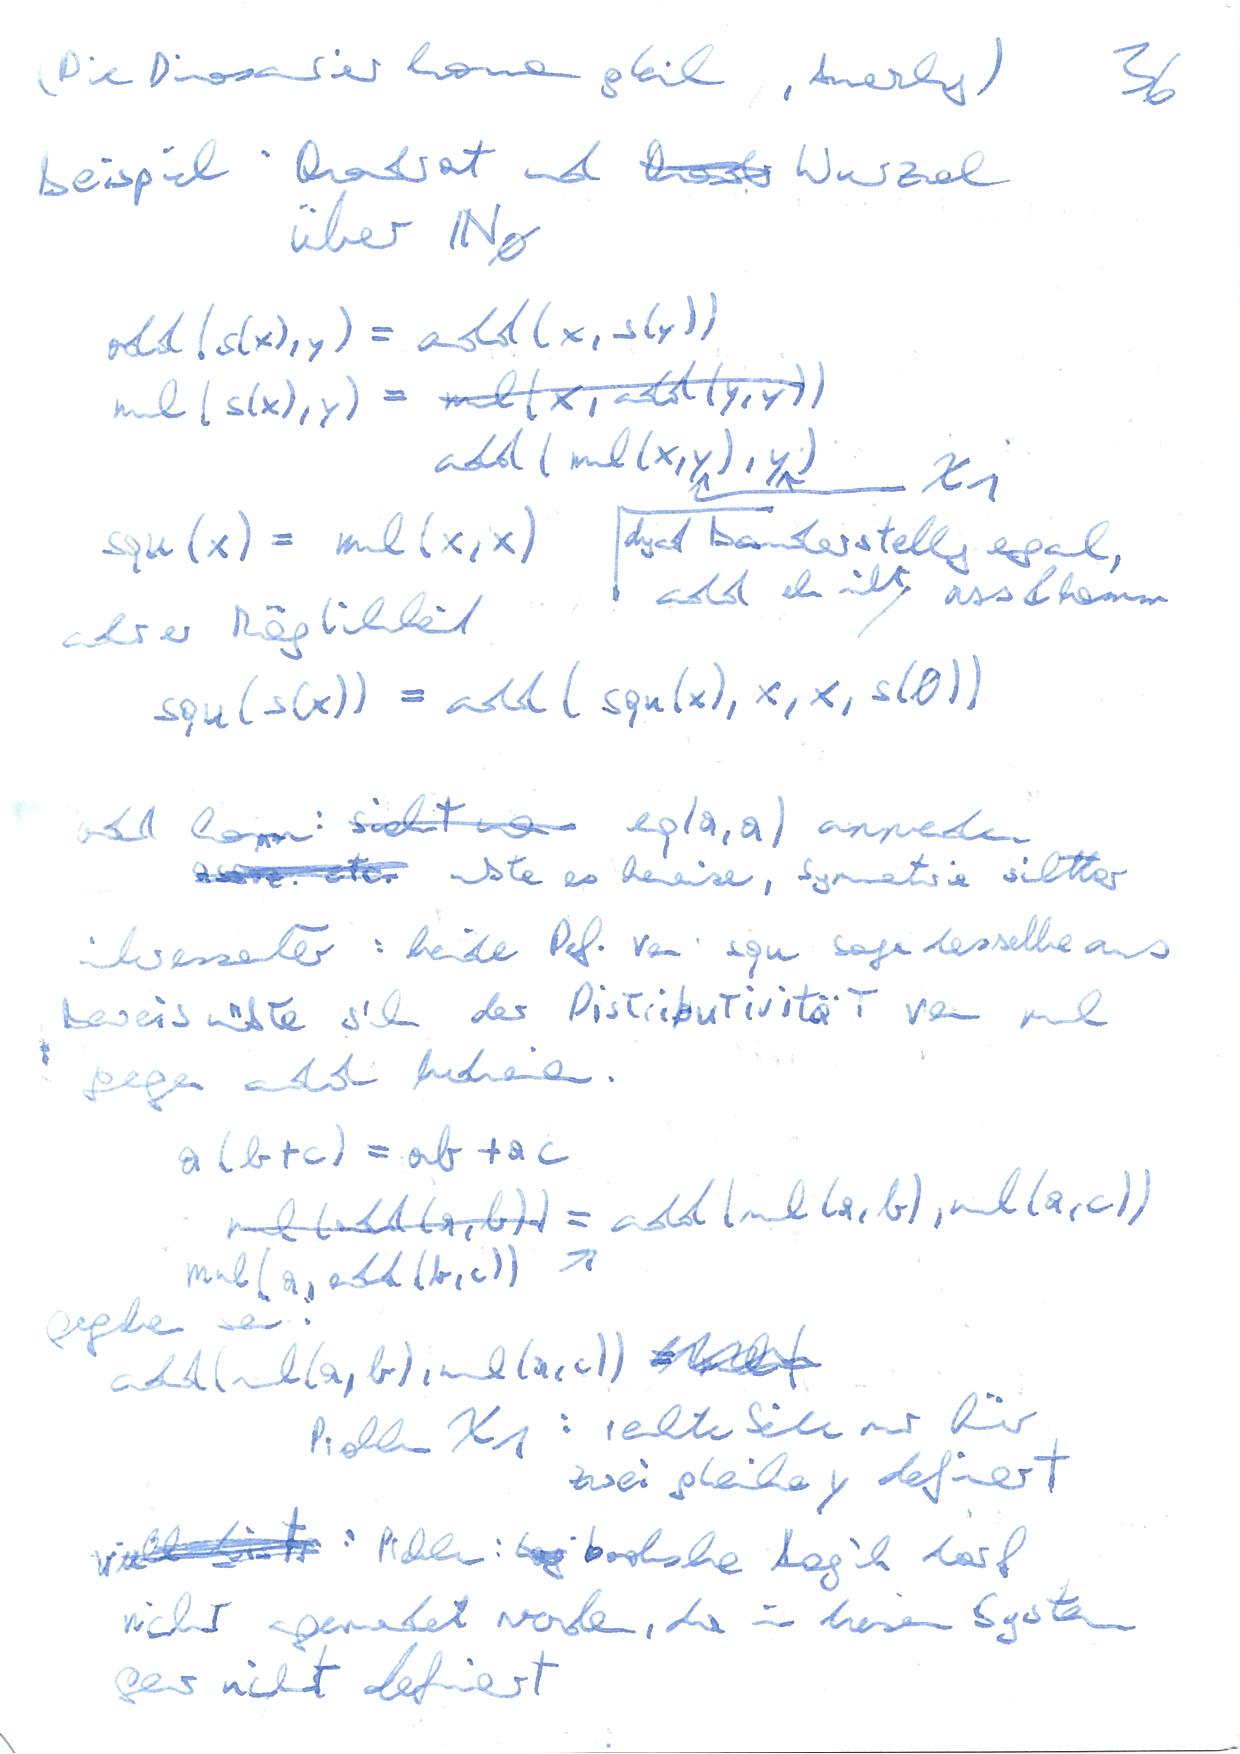 (Die Dinosaurier kommen gleich, Amerly) 36
Beispiel: Quadrat und Wurzel
über IN0
add(s(x),y) = add(x, s(y))
mul(s(x),y) = mul(x, add(y,y))
add(mul(x,y),y) X1
squ(x) = mul(x,x) durch Darstellung egal,
add eh nicht,
andere Möglichkeit
squ(s(x)) = add(squ(x), x, x, s(0))
add komm: sieht man eq(a,a) anwenden
assoz. etc. müßte es beweisen, Symmetrie
interessanter: beide Def. von squ sagen dasselbe aus
Beweis müßte sich der Distributivität von mul
gegen add bedienen.
a(b+c) = ab + ac
mul(add(a,b)) = add(mul(a,b), mul(a,c))
mul(a, add(b,c))
gegeben sei:
add(mul(a,b), mul(a,c))
Problem X1: rechte Seite nur für
zwei gleiche y definiert
: Problem: boolsche Logik darf
nicht angewendet werden, da in diesem System
gar nicht definiert